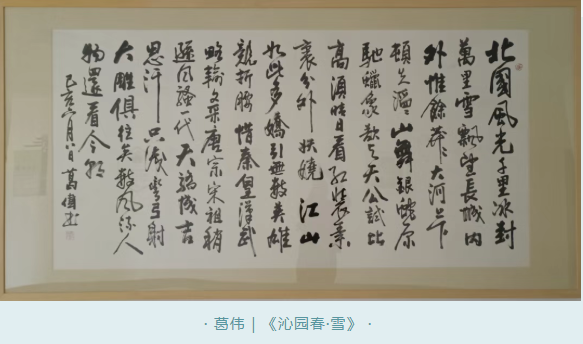 北國風光千里冰封
萬里雪飄望長城内
外惟餘莽莽大河上下
頓失滔滔山舞銀蛇原
馳蠟象欲与天公試比
高須晴日看紅裝素
裹分外妖嬈江山
如此多嬌引無數英雄
競折腰惜秦皇漢武
略輸文采唐宗宋祖稍
遜風騷一代天驕成吉
思汗只識彎弓射
大雕俱往矣數風流人
物還看今朝
己亥六月八日葛偉书
· 葛伟 | 《沁园春·雪》 ·